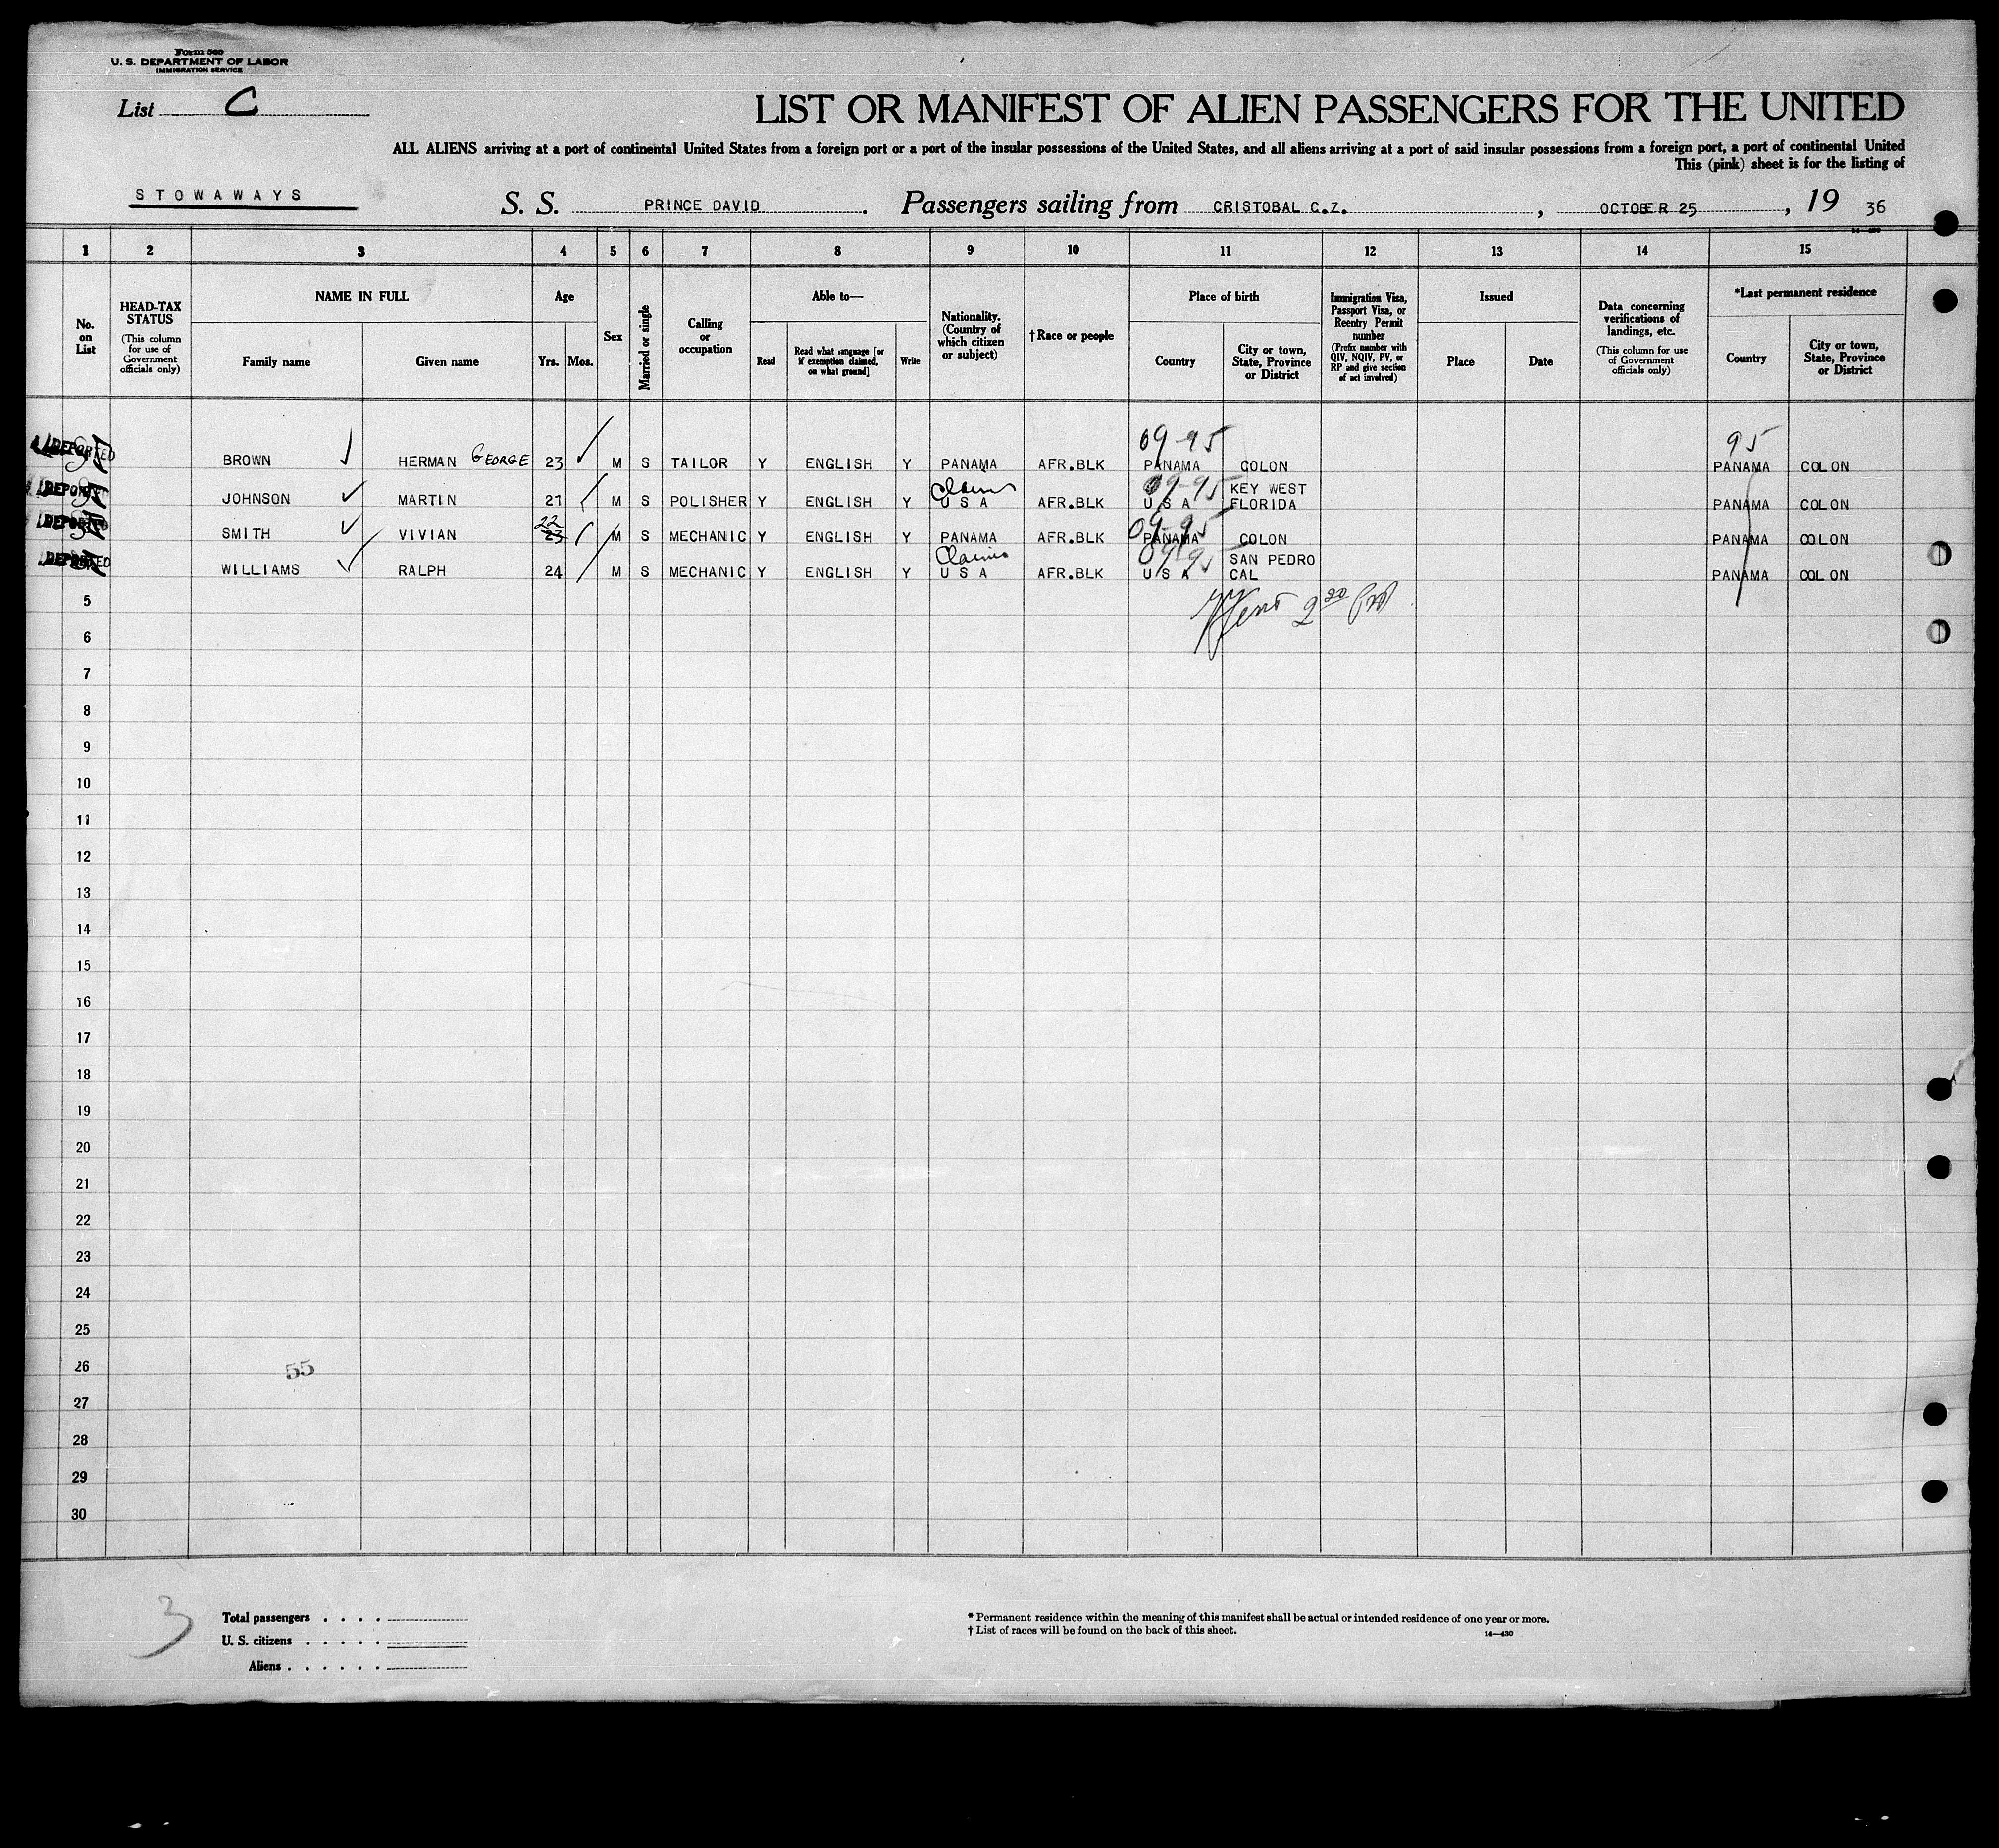 Form 500
U. S. DEPARTMENT OF LABOR
IMMIGRATION SERVICE
List C
LIST OR MANIFEST OF ALIEN PASSENGERS FOR THE UNITED
ALL ALIENS arriving at a port of continental United States from a foreign port or a port of the insular possessions of the United States, and all aliens arriving at a port of said insular possessions from a foreign port, a port of continental United
This (pink) sheet is for the listing of
STOWAWAYS S. S. PRINCE DAVID . Passengers sailing from CRISTOBAL C.Z. , OCTOBER 25 , 19 36
1 2 3 4 5 6 7 8 9 10 11 12 13 14 15
No. on List
HEAD-TAX STATUS (This column for use of Government officials only)
NAME IN FULL
Family name Given name
Age
Yrs. Mos.
Sex
Married or single
Calling or occupation
Able to—
Read Read what language [or if exemption claimed, on what ground] Write
Nationality. (Country of which citizen or subject)
† Race or people
Place of birth
Country City or town, State, Province or District
Immigration Visa, Passport Visa, or Reentry Permit number (Prefix number with QIV, NQIV, PV, or RP and give section of act involved)
Issued
Place Date
Data concerning verifications of landings, etc. (This column for use of Government officials only)
*Last permanent residence
Country City or town, State, Province or District
09-95 95
DEPORTED BROWN HERMAN GEORGE 23 M S TAILOR Y ENGLISH Y PANAMA AFR.BLK PANAMA COLON PANAMA COLON
Claims 09-95 KEY WEST
DEPORTED JOHNSON MARTIN 21 M S POLISHER Y ENGLISH Y U S A AFR.BLK U S A FLORIDA PANAMA COLON
22 09-95
DEPORTED SMITH VIVIAN 23 M S MECHANIC Y ENGLISH Y PANAMA AFR.BLK PANAMA COLON PANAMA COLON
Claims 09-95 SAN PEDRO
DEPORTED WILLIAMS RALPH 24 M S MECHANIC Y ENGLISH Y U S A AFR.BLK U S A CAL PANAMA COLON
5
6
7
8
9
10
11
12
13
14
15
16
17
18
19
20
21
22
23
24
25
26 55
27
28
29
30
3
Total passengers . . . .
U. S. citizens . . . . .
Aliens . . . . . .
* Permanent residence within the meaning of this manifest shall be actual or intended residence of one year or more.
† List of races will be found on the back of this sheet. 14—430